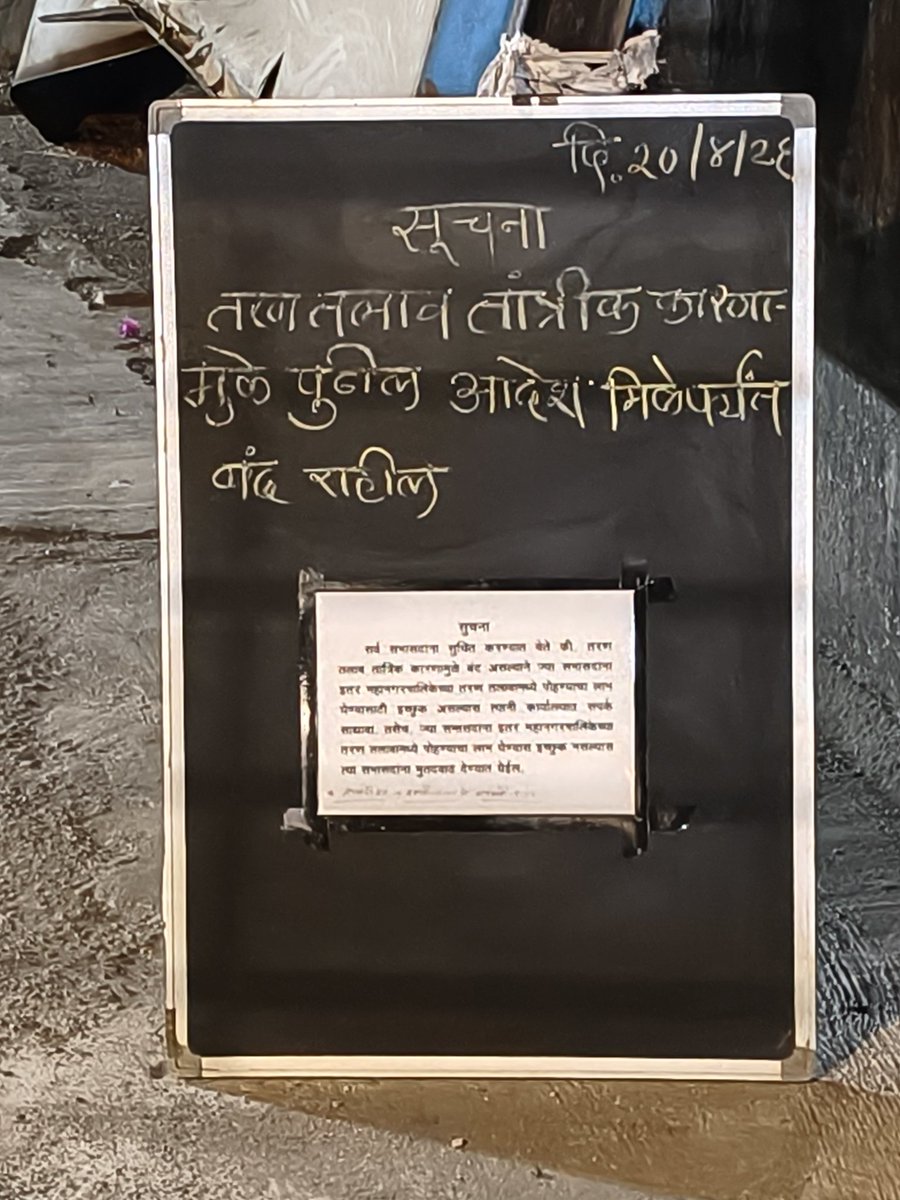 दि. २०/४/२६
सूचना
तरण तलाव तांत्रीक कारणा-
मुळे पुढील आदेश मिळेपर्यंत
बंद राहील
सुचना
सर्व सभासदांना सुचित करण्यात येते की, तरण
तलाव तांत्रिक कारणामुळे बंद असल्याने ज्या सभासदांना
इतर महानगरपालिकेच्या तरण तलावामध्ये पोहण्याचा लाभ
घेण्यासाठी इच्छुक असल्यास त्यांनी कार्यालयात संपर्क
साधावा. तसेच, ज्या सभासदांना इतर महानगरपालिकेच्या
तरण तलावामध्ये पोहण्याचा लाभ घेण्यास इच्छुक नसल्यास
त्या सभासदांना मुतदवाढ देण्यात येईल.